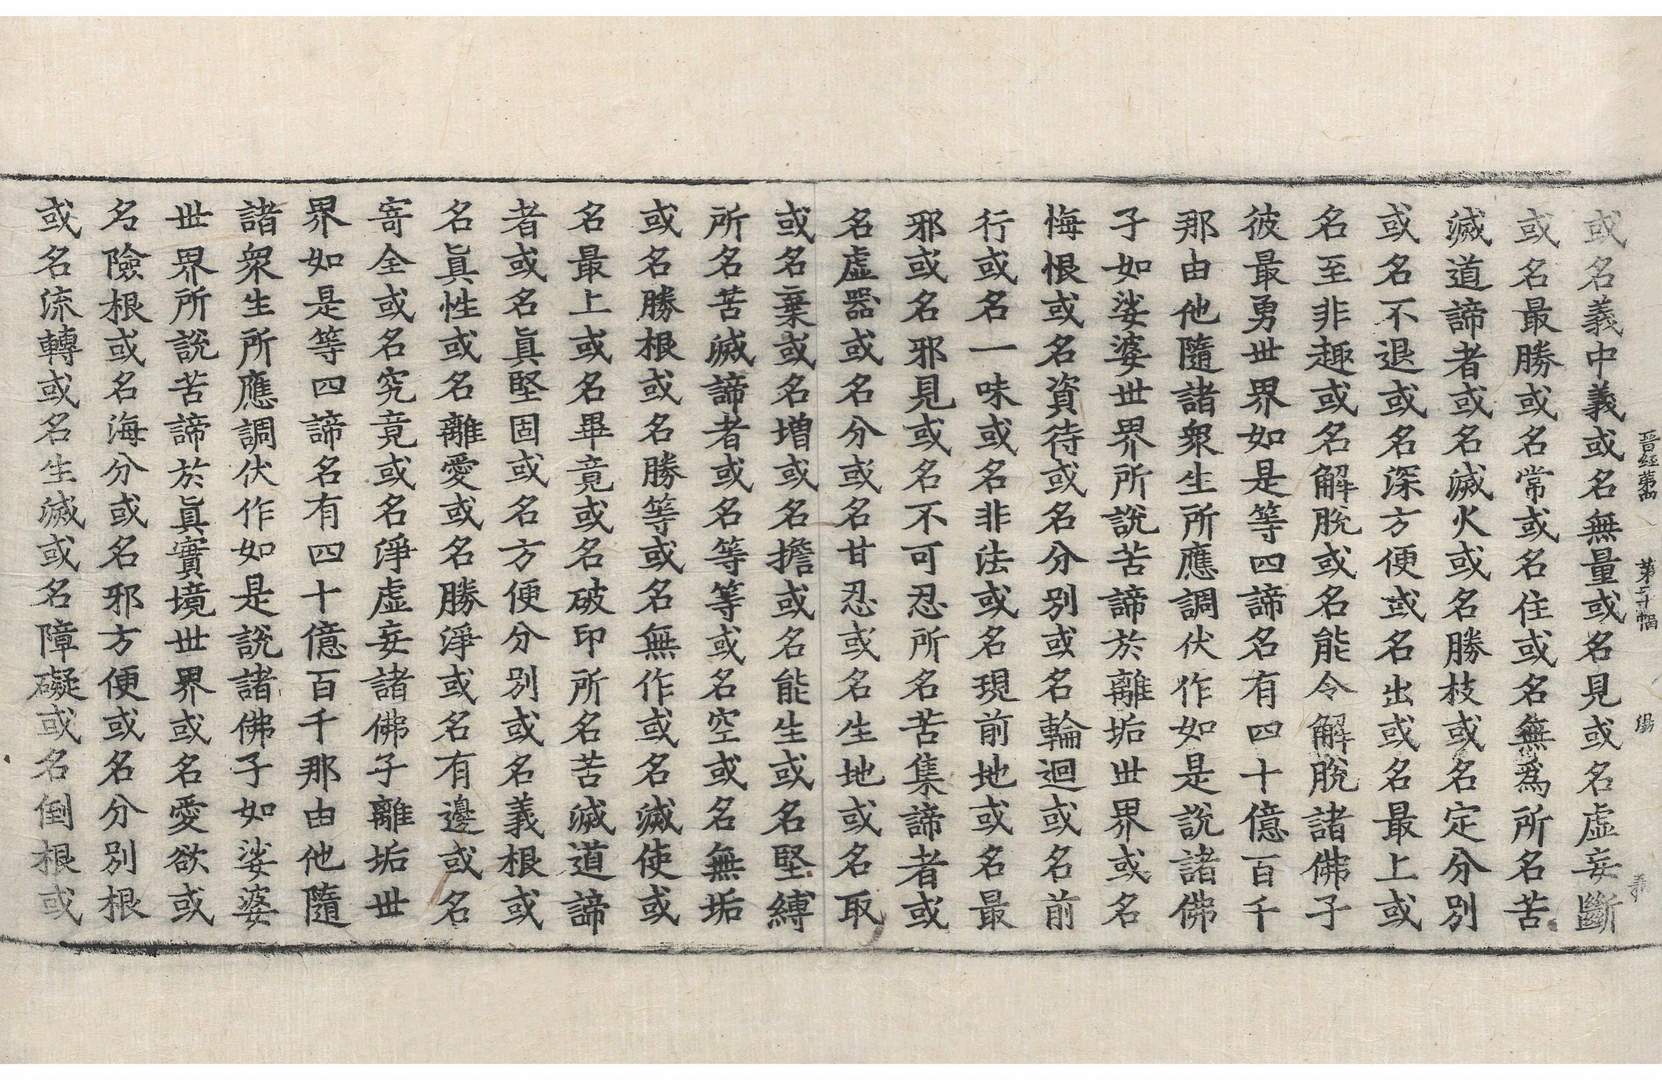 晉經第四 第二十幅
或名義中義或名無量或名見或名虛妄斷
或名最勝或名常或名住或名無為所名苦
滅道諦者或名滅火或名勝枝或名定分別
或名不退或名深方便或名出或名最上或
名至非趣或名解脫或名能令解脫諸佛子
彼最勇世界如是等四諦名有四十億百千
那由他隨諸眾生所應調伏作如是說諸佛
子如娑婆世界所說苦諦於離垢世界或名
悔恨或名資待或名分別或名輪迴或名前
行或名一味或名非法或名現前地或名最
邪或名邪見或名不可忍所名苦集諦者或
名虛器或名分或名甘忍或名生地或名取
或名棄或名增或名擔或名能生或名堅縛
所名苦滅諦者或名等等或名空或名無垢
或名勝根或名勝等或名無作或名滅使或
名最上或名畢竟或名破印所名苦滅道諦
者或名眞堅固或名方便分別或名義根或
名眞性或名離愛或名勝淨或名有邊或名
寄全或名究竟或名淨虛妄諸佛子離垢世
界如是等四諦名有四十億百千那由他隨
諸眾生所應調伏作如是說諸佛子如娑婆
世界所說苦諦於眞實境世界或名愛欲或
名險根或名海分或名邪方便或名分別根
或名流轉或名生滅或名障礙或名倒根或